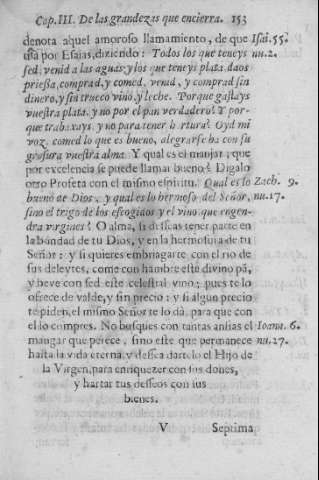 Cap. III. De las grandezas que encierra. 153
denota aquel amoroso llamamiento, de que Isai. 55.
usa por Esaias, diziendo: Todos los que teneys nu. 2.
sed, venid a las aguas: y los que teneys plata, daos
priessa, comprad, y comed, venid, y comprad sin
dinero, y sin trueco vino, y leche. Porque gastays
vuestra plata, y no por el pan verdadero? Y por-
que trabaxays, y no para tener hartura? Oyd mi
voz, comed lo que es bueno, alegrarse ha con su
grosura vuestra alma. Y qual es el manjar, que
por excelencia se puede llamar bueno? Digalo
otro Profeta con el mismo espiritu. Qual es lo Zach. 9.
bueno de Dios, y qual es lo hermoso del Señor, nu. 17.
sino el trigo de los escogidos y el vino que engen-
dra virgines? O alma, si desseas tener parte en
la bondad de tu Dios, y en la hermosura de tu
Señor: y si quieres embriagarte con el rio de
sus deleytes, come con hambre este divino pã,
y beve con sed este celestial vino; pues te lo
ofrece de valde, y sin precio: y si algun precio
te piden, el mismo Señor te lo dà, para que con
el lo compres. No busques con tantas ansias el Ioann. 6.
manjar que perece, sino este que permanece nu. 27.
hasta la vida eterna, y dessea dartelo el Hijo de
la Virgen, para enriquezer con sus dones,
y hartar tus desseos con sus
bienes.
V Septima